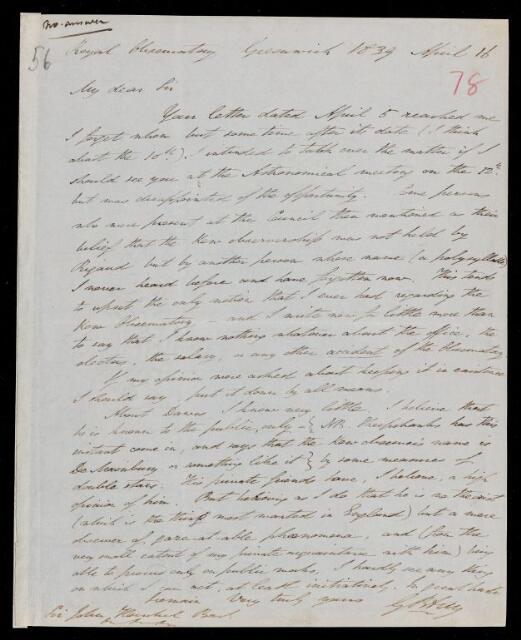 no answer
56
Royal Observatory Greenwich 1839 April 16
78
My dear Sir
Your letter dated April 5 reached me
I forget when but some time after its date (I think
about the 10th). I intended to talk over the matter if I
should see you at the Astronomical meeting on the 12th
but was disappointed of the opportunity. Some person
who were present at the Council then mentioned as their
belief that the Kew observership was not held by
Rigaud but by another person whose name (a polysyllable)
I never heard before and have forgotten now. This tends
to upset the only notion that I ever had regarding the
Kew Observatory – and I write now for little more than
to say that I know nothing whatever about the office, the
electors, the salary, or any other accident of the Observatory.
If my opinion were asked about keeping it in existence
I should say, put it down by all means.
About Dawes I know very little. I believe that
he is known to the public only – { NB. Sheepshanks has this
instant come in, and says that the Kew observer's name is
De or something like it } by some measures of
double stars. His private friends have, I believe, a high
opinion of him. But believing as I do that he is no theorist
(which is the thing most wanted in England) but a mere
observer of gaze-at-able phænomena, and (from the
very small extent of my private acquaintance with him) being
able to pronounce only on public marks, I hardly see any thing
on which I can act, at least initiatively. In great haste
I remain Very truly yours G B Airy
Sir John Herschel Bart.